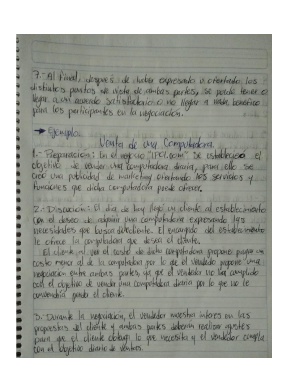 7.- Al final, después de haber expresado u ofertado los
distintos puntos de vista de ambas partes, se puede tener o
llegar a un acuerdo satisfactorio o no llegar a nada benéfico
para los participantes en la negociación.
→ Ejemplo.
Venta de una Computadora.
1.- Preparación: En el negocio se estableció el
objetivo de vender una computadora diaria, para ello se
creó una publicidad de marketing ofertando los servicios y
funciones que dicha computadora puede ofrecer.
2.- Discusión: El día de hoy llegó un cliente al establecimiento
con el deseo de adquirir una computadora expresando las
necesidades que busca deferente. El encargado del establecimiento
le ofrece la computadora que desea el cliente.
El cliente al ver el costo de dicha computadora propone pagar un
costo menor al de la computadora por lo que el vendedor propone una
negociación entre ambas partes, ya que el vendedor no ha cumplido
con el objetivo de vender una computadora diaria por lo que no le
convendría perder el cliente.
3.- Durante la negociación, el vendedor muestra interés en las
propuestas del cliente y ambas partes deberán realizar ajustes
para que el cliente obtenga lo que necesita y el vendedor cumpla
con el objetivo diario de ventas.